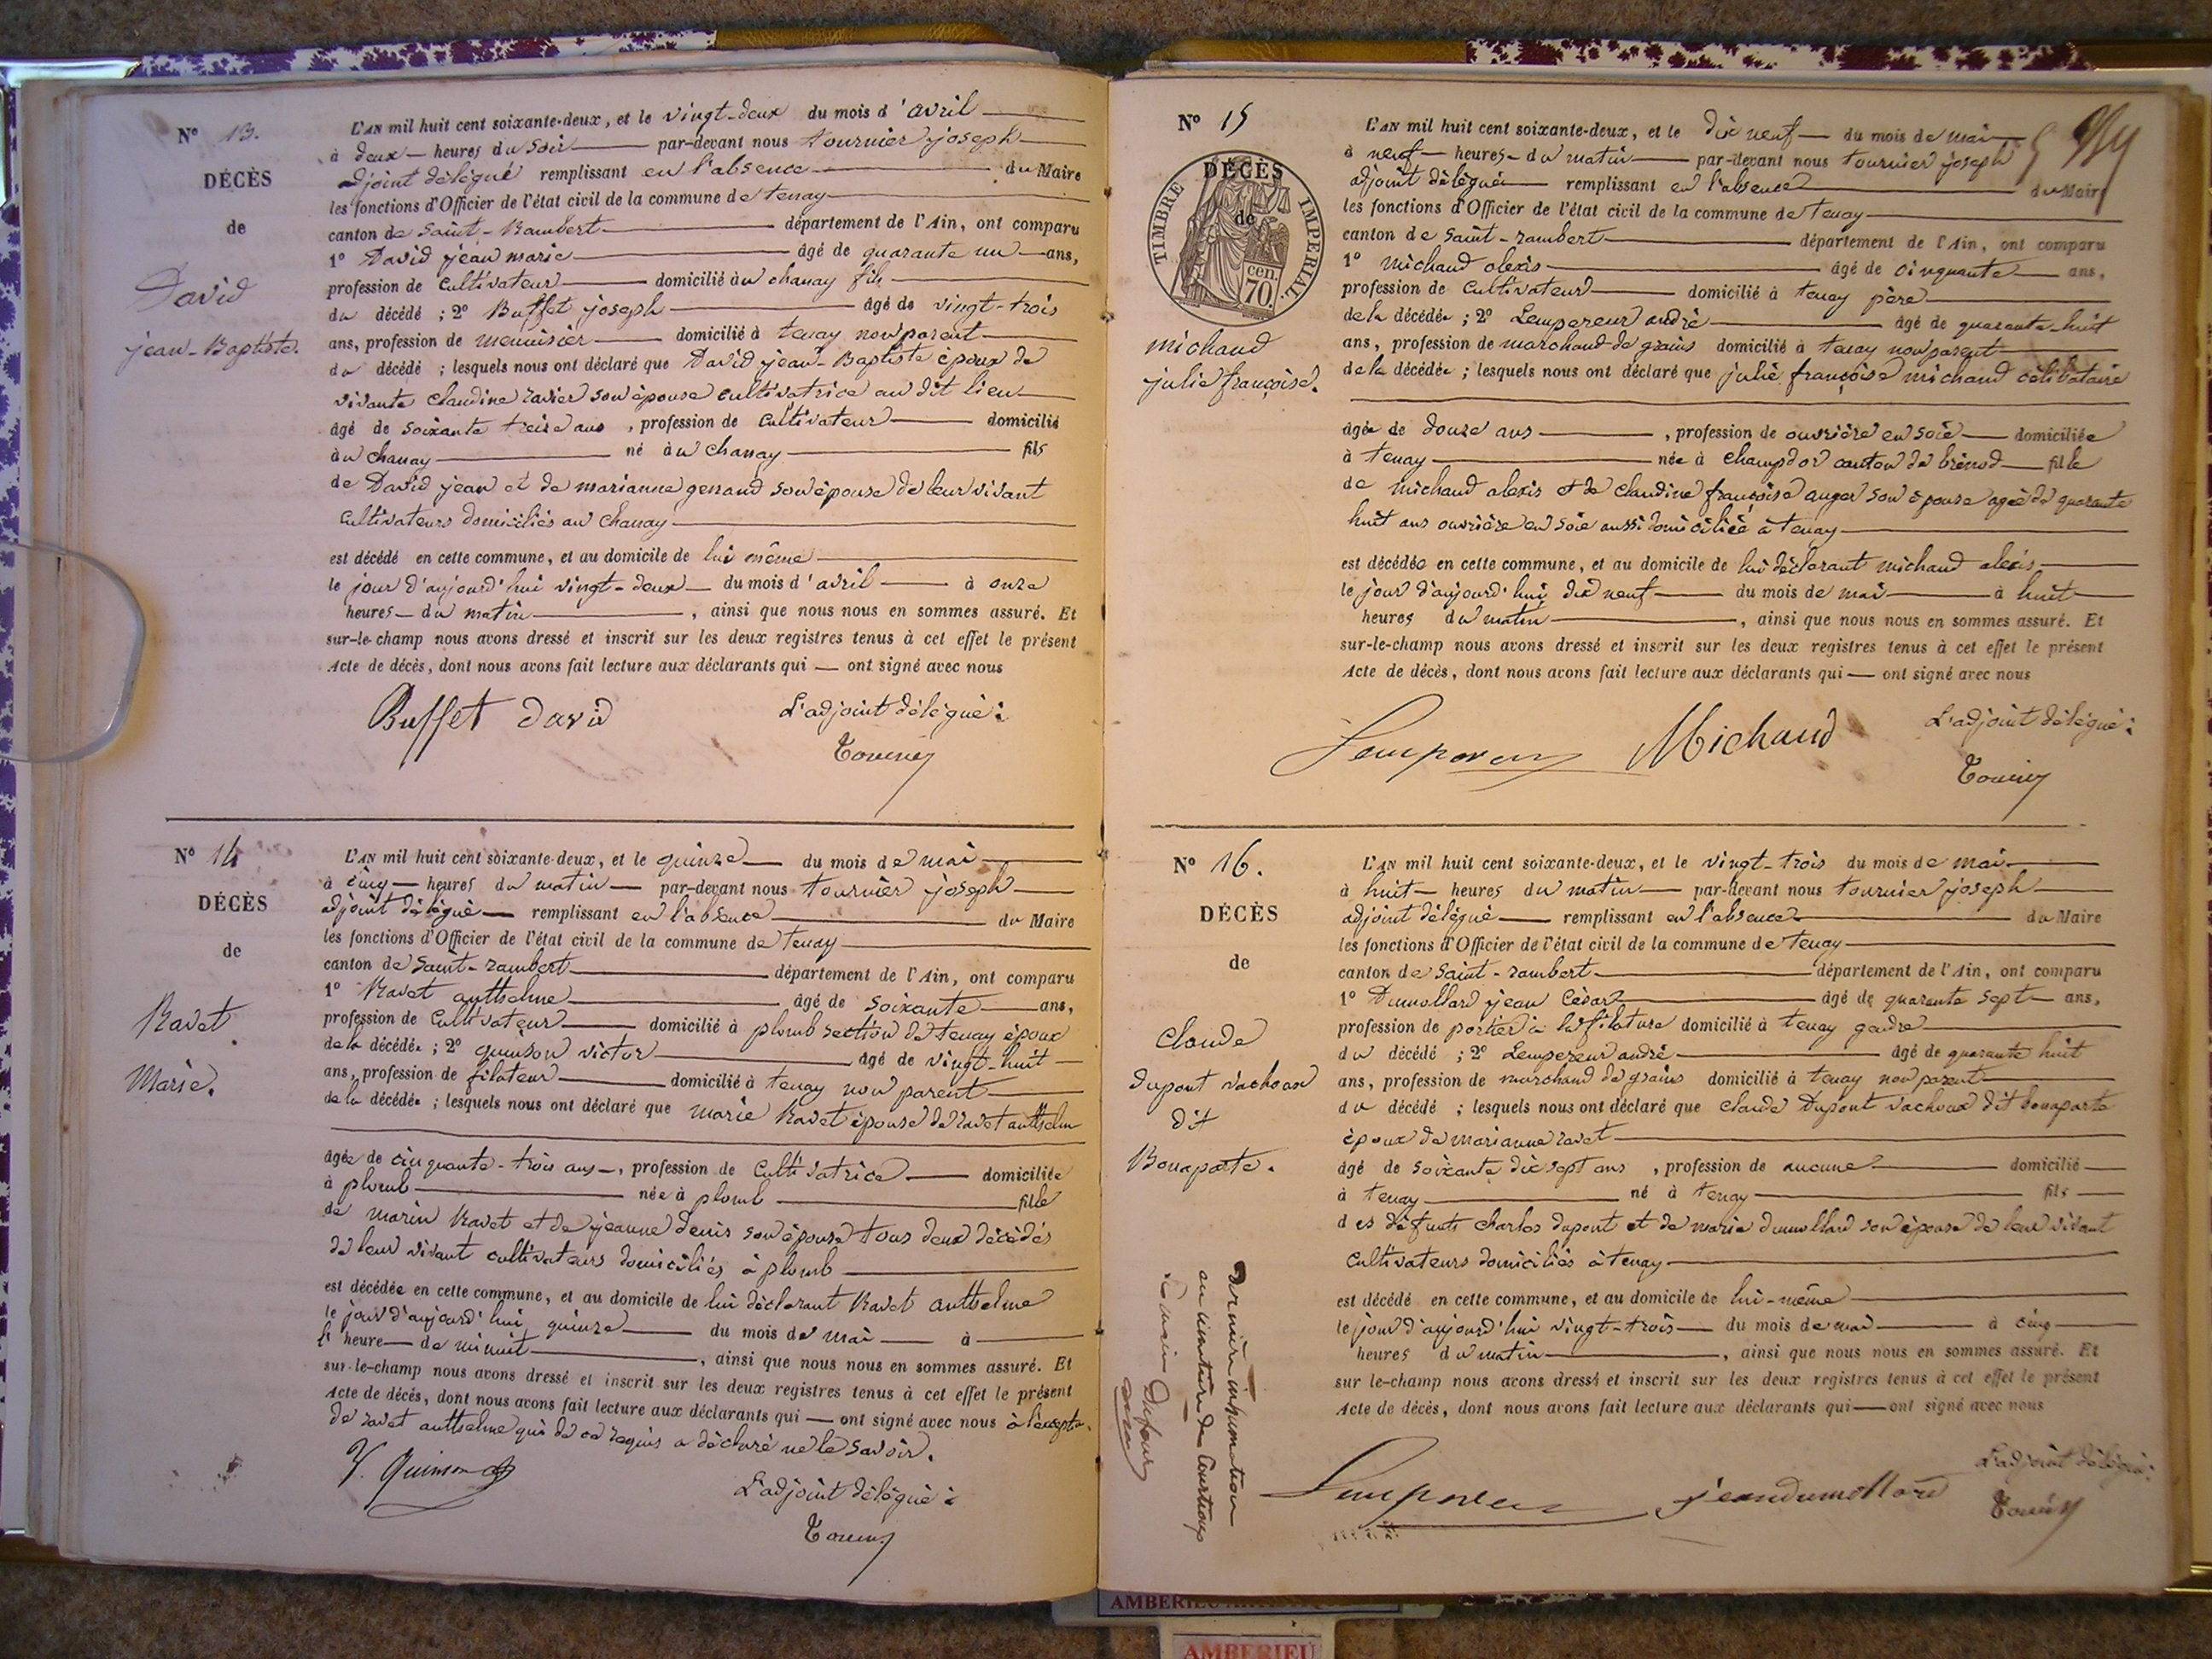 Nº 13.
DÉCÈS
de
David
jean-Baptiste.
L'AN mil huit cent soixante-deux, et le vingt-deux du mois d'avril
à deux heures du soir par-devant nous tournier joseph
adjoint délégué remplissant en l'absence du Maire
les fonctions d'Officier de l'état civil de la commune de tenay
canton de Saint-Rambert département de l'Ain, ont comparu
1º David jean marie âgé de quarante un ans,
profession de Cultivateur domicilié au chanay fils
du décédé ; 2º Buffet joseph âgé de vingt-trois
ans, profession de menuisier domicilié à tenay non parent
du décédé ; lesquels nous ont déclaré que David jean-Baptiste époux de
vivante claudine ravier son épouse cultivatrice au dit lieu
âgé de soixante treize ans, profession de Cultivateur domicilié
au chanay né au chanay fils
de David jean et de marianne genand son épouse de leur vivant
Cultivateurs domiciliés au chanay
est décédé en cette commune, et au domicile de lui même
le jour d'aujourd'hui vingt-deux du mois d'avril à onze
heures du matin, ainsi que nous nous en sommes assuré. Et
sur-le-champ nous avons dressé et inscrit sur les deux registres tenus à cet effet le présent
Acte de décès, dont nous avons fait lecture aux déclarants qui ont signé avec nous
Buffet David L'adjoint délégué :
Nº 14
DÉCÈS
de
Ravet
Marie.
L'AN mil huit cent soixante-deux, et le quinze du mois de mai
à cinq heures du matin par-devant nous tournier joseph
adjoint délégué remplissant en l'absence du Maire
les fonctions d'Officier de l'état civil de la commune de tenay
canton de Saint-rambert département de l'Ain, ont comparu
1º Ravet anthelme âgé de soixante ans,
profession de Cultivateur domicilié à plomb section de tenay époux
de la décédée ; 2º quinson victor âgé de vingt-huit
ans, profession de filateur domicilié à tenay non parent
de la décédée ; lesquels nous ont déclaré que marie Ravet épouse de ravet anthelm
âgée de cinquante-trois ans, profession de Cultivatrice domiciliée
à plomb née à plomb fille
de marin Ravet et de jeanne denis son épouse tous deux décédés
de leur vivant cultivateurs domiciliés à plomb
est décédée en cette commune, et au domicile de lui déclarant Ravet anthelme
le jour d'aujourd'hui quinze du mois de mai à
l'heure de minuit, ainsi que nous nous en sommes assuré. Et
sur-le-champ nous avons dressé et inscrit sur les deux registres tenus à cet effet le présent
Acte de décès, dont nous avons fait lecture aux déclarants qui ont signé avec nous à l'exception
de ravet anthelme qui de ce requis a déclaré ne le savoir.
V. Quinson
L'adjoint délégué :
Nº 15
DÉCÈS
de
TIMBRE IMPÉRIAL
cen.
70.
michaud
julie françoise.
L'AN mil huit cent soixante-deux, et le dix neuf du mois de mai
à neuf heures du matin par-devant nous tournier joseph
adjoint délégué remplissant en l'absence du Maire
les fonctions d'Officier de l'état civil de la commune de tenay
canton de saint-rambert département de l'Ain, ont comparu
1º michaud alexis âgé de cinquante ans,
profession de cultivateur domicilié à tenay père
de la décédée ; 2º Lempereur andré âgé de quarante-huit
ans, profession de marchand de grains domicilié à tenay non parent
de la décédée ; lesquels nous ont déclaré que julie françoise michaud célibataire
âgée de douze ans, profession de ouvrière en soie domiciliée
à tenay née à champdor canton de brénod fille
de michaud alexis et de claudine françoise auger son épouse agée de quarante
huit ans ouvrière en soie aussi domiciliée à tenay
est décédée en cette commune, et au domicile de lui déclarant michaud alexis
le jour d'aujourd'hui dix neuf du mois de mai à huit
heures du matin, ainsi que nous nous en sommes assuré. Et
sur-le-champ nous avons dressé et inscrit sur les deux registres tenus à cet effet le présent
Acte de décès, dont nous avons fait lecture aux déclarants qui ont signé avec nous
Michaud L'adjoint délégué :
Nº 16.
DÉCÈS
de
claude
dupont vachoux
dit
Bonaparte.
dernière inhumation
au cimetière de
Le maire Dufour
L'AN mil huit cent soixante-deux, et le vingt-trois du mois de mai
à huit heures du matin par-devant nous tournier joseph
adjoint délégué remplissant en l'absence du Maire
les fonctions d'Officier de l'état civil de la commune de tenay
canton de saint-rambert département de l'Ain, ont comparu
1º Dumollard jean César âgé de quarante sept ans,
profession de portier à la filature domicilié à tenay gendre
du décédé ; 2º Lempereur andré âgé de quarante huit
ans, profession de marchand de grains domicilié à tenay non parent
du décédé ; lesquels nous ont déclaré que claude Dupont vachoux dit bonaparte
époux de marianne ravet
âgé de soixante dix sept ans, profession de aucune domicilié
à tenay né à tenay fils
des défunts charles dupont et de marie dumollard son épouse de leur vivant
cultivateurs domiciliés à tenay
est décédé en cette commune, et au domicile de lui-même
le jour d'aujourd'hui vingt-trois du mois de mai à cinq
heures du matin, ainsi que nous nous en sommes assuré. Et
sur le-champ nous avons dressé et inscrit sur les deux registres tenus à cet effet le présent
Acte de décès, dont nous avons fait lecture aux déclarants qui ont signé avec nous
jean dumollard L'adjoint délégué :
AMBERIEU